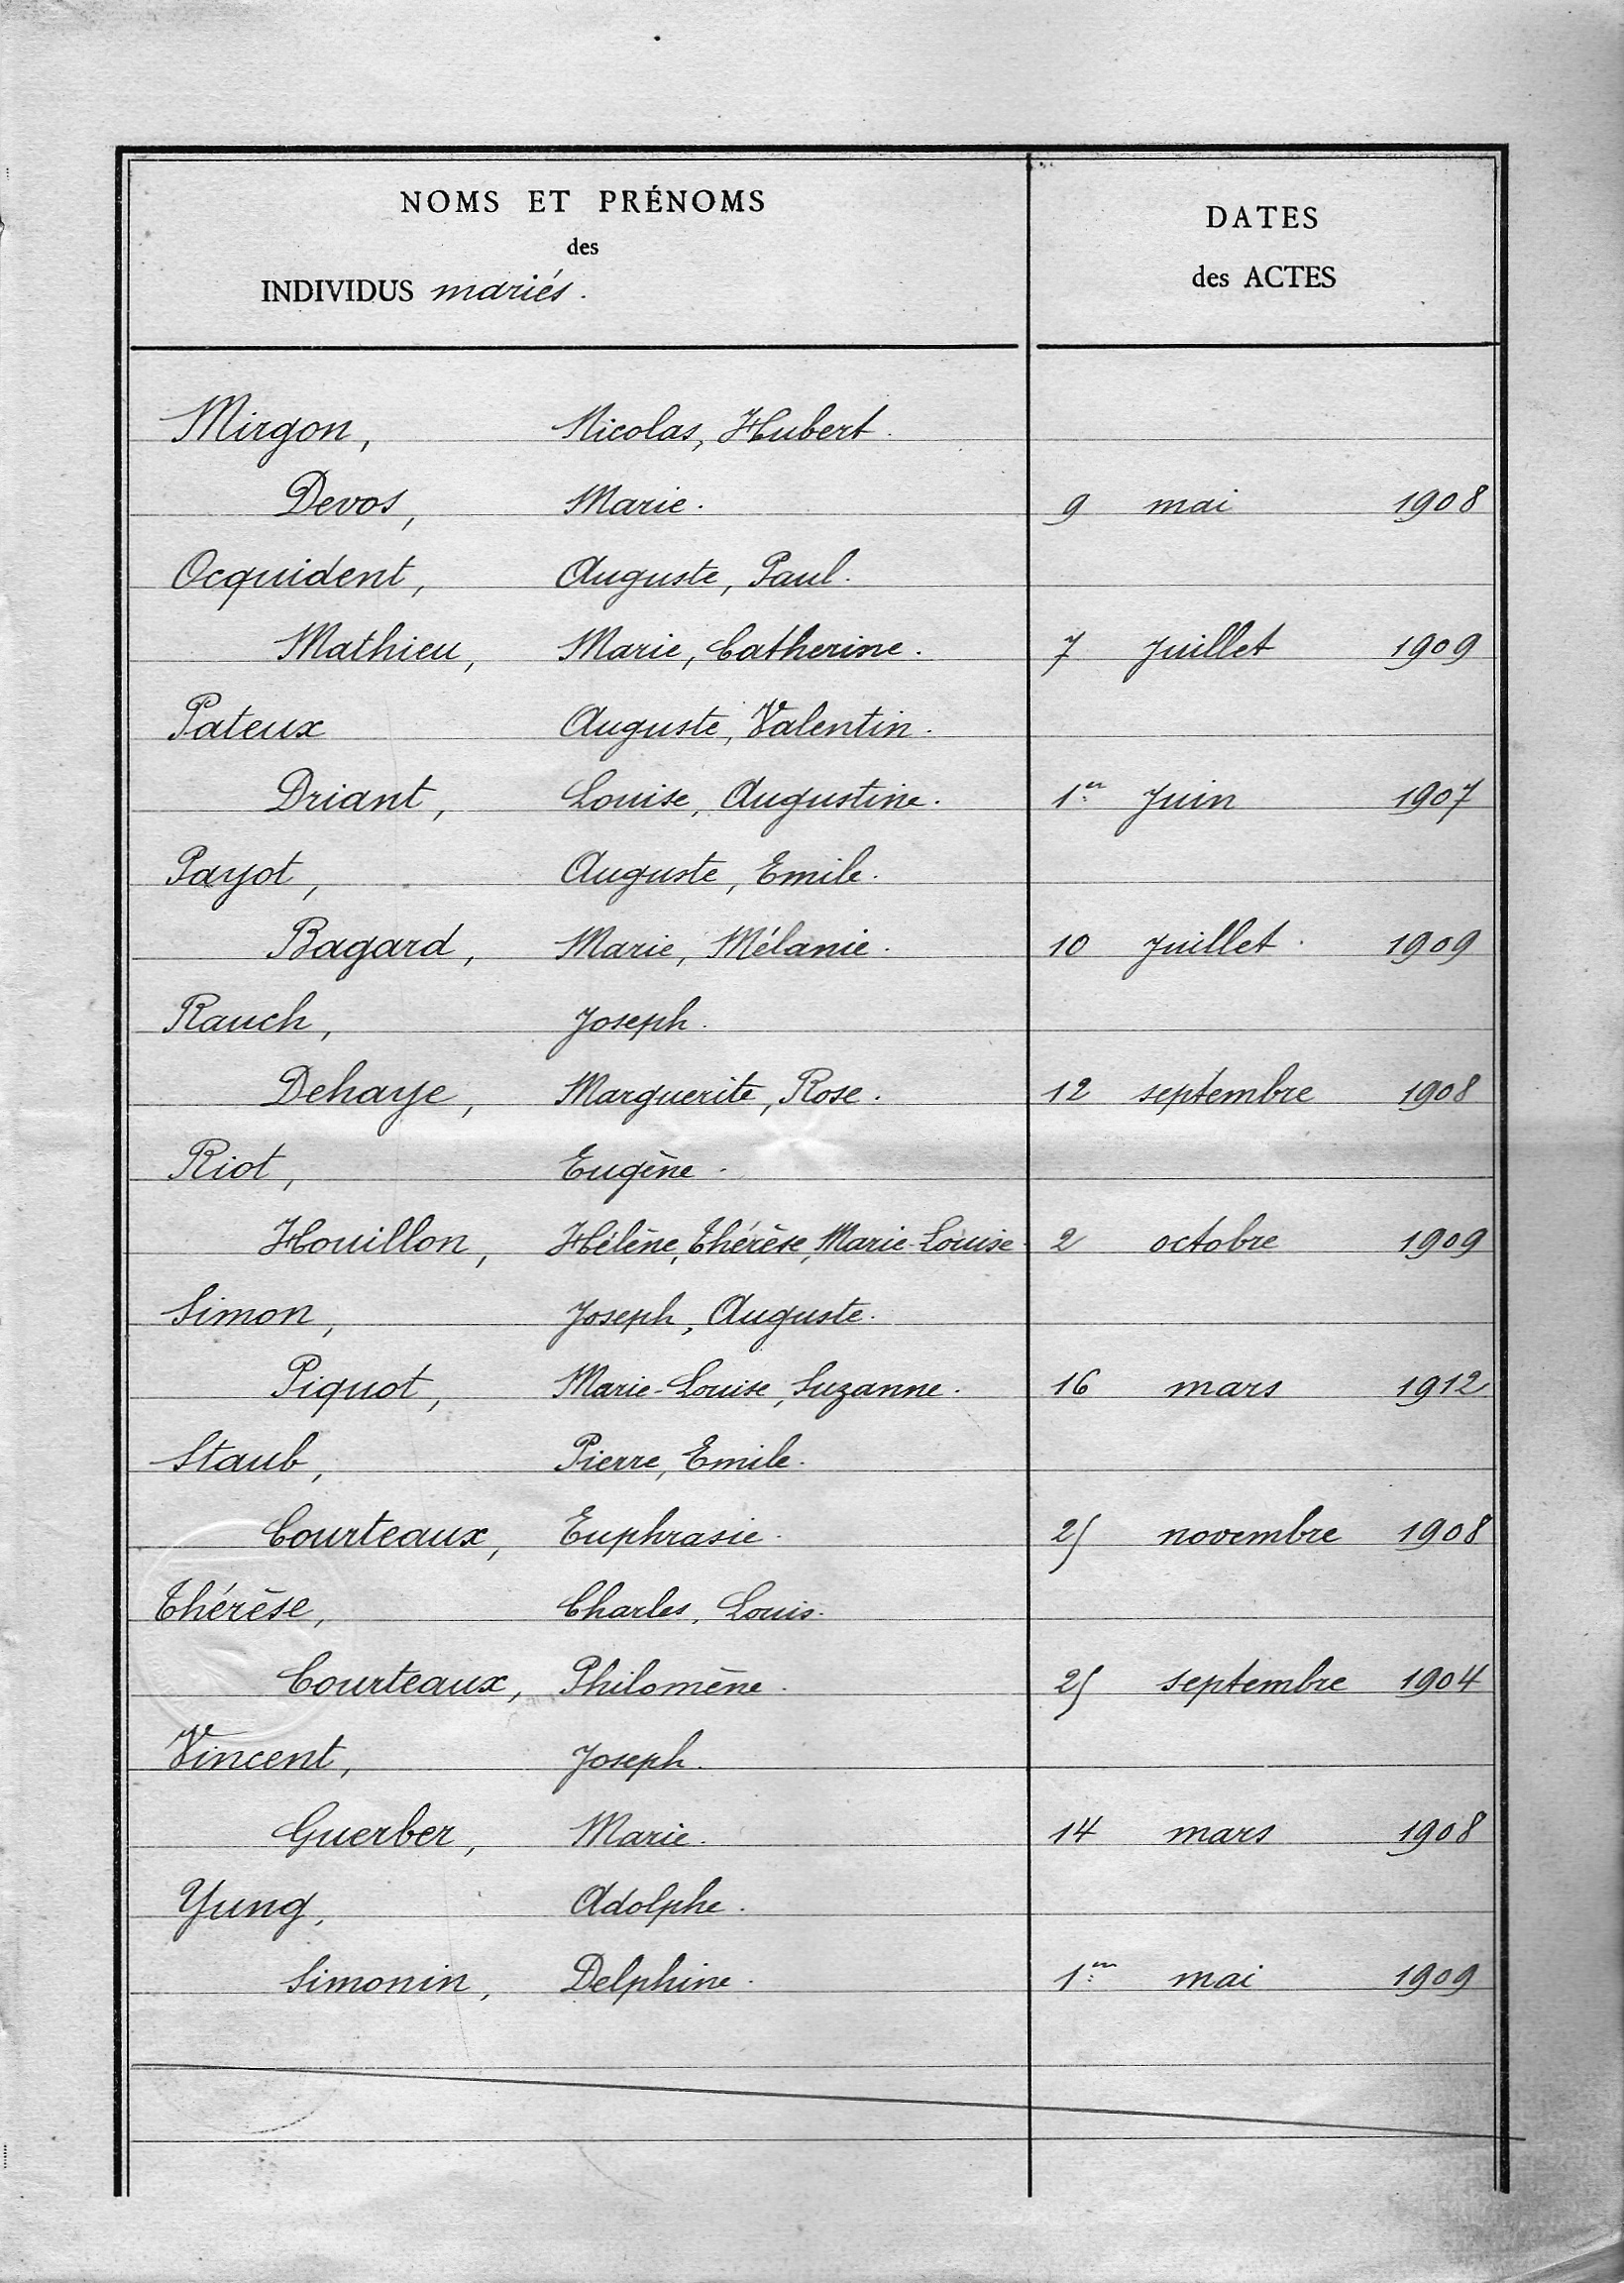 NOMS ET PRÉNOMS
des
INDIVIDUS mariés.
DATES
des ACTES
Mirgon, Nicolas, Hubert.
Devos, Marie. 9 mai 1908
Ocquident, Auguste, Paul.
Mathieu, Marie, Catherine. 7 juillet 1909
Pateux Auguste, Valentin.
Driant, Louise, Augustine. 1er juin 1907
Payot, Auguste, Emile.
Bagard, Marie, Mélanie. 10 juillet. 1909
Rauch, Joseph.
Dehaye, Marguerite, Rose. 12 septembre 1908
Riot, Eugène.
Houillon, Hélène, Thérèse, Marie-Louise. 2 octobre 1909
Simon, Joseph, Auguste.
Piquot, Marie-Louise, Suzanne. 16 mars 1912
Staub, Pierre, Emile.
Courteaux, Euphrasie. 25 novembre 1908
Thérèse, Charles, Louis.
Courteaux, Philomène. 25 septembre 1904
Vincent, Joseph.
Guerber, Marie. 14 mars 1908
Yung, Adolphe.
Simonin, Delphine. 1er mai 1909